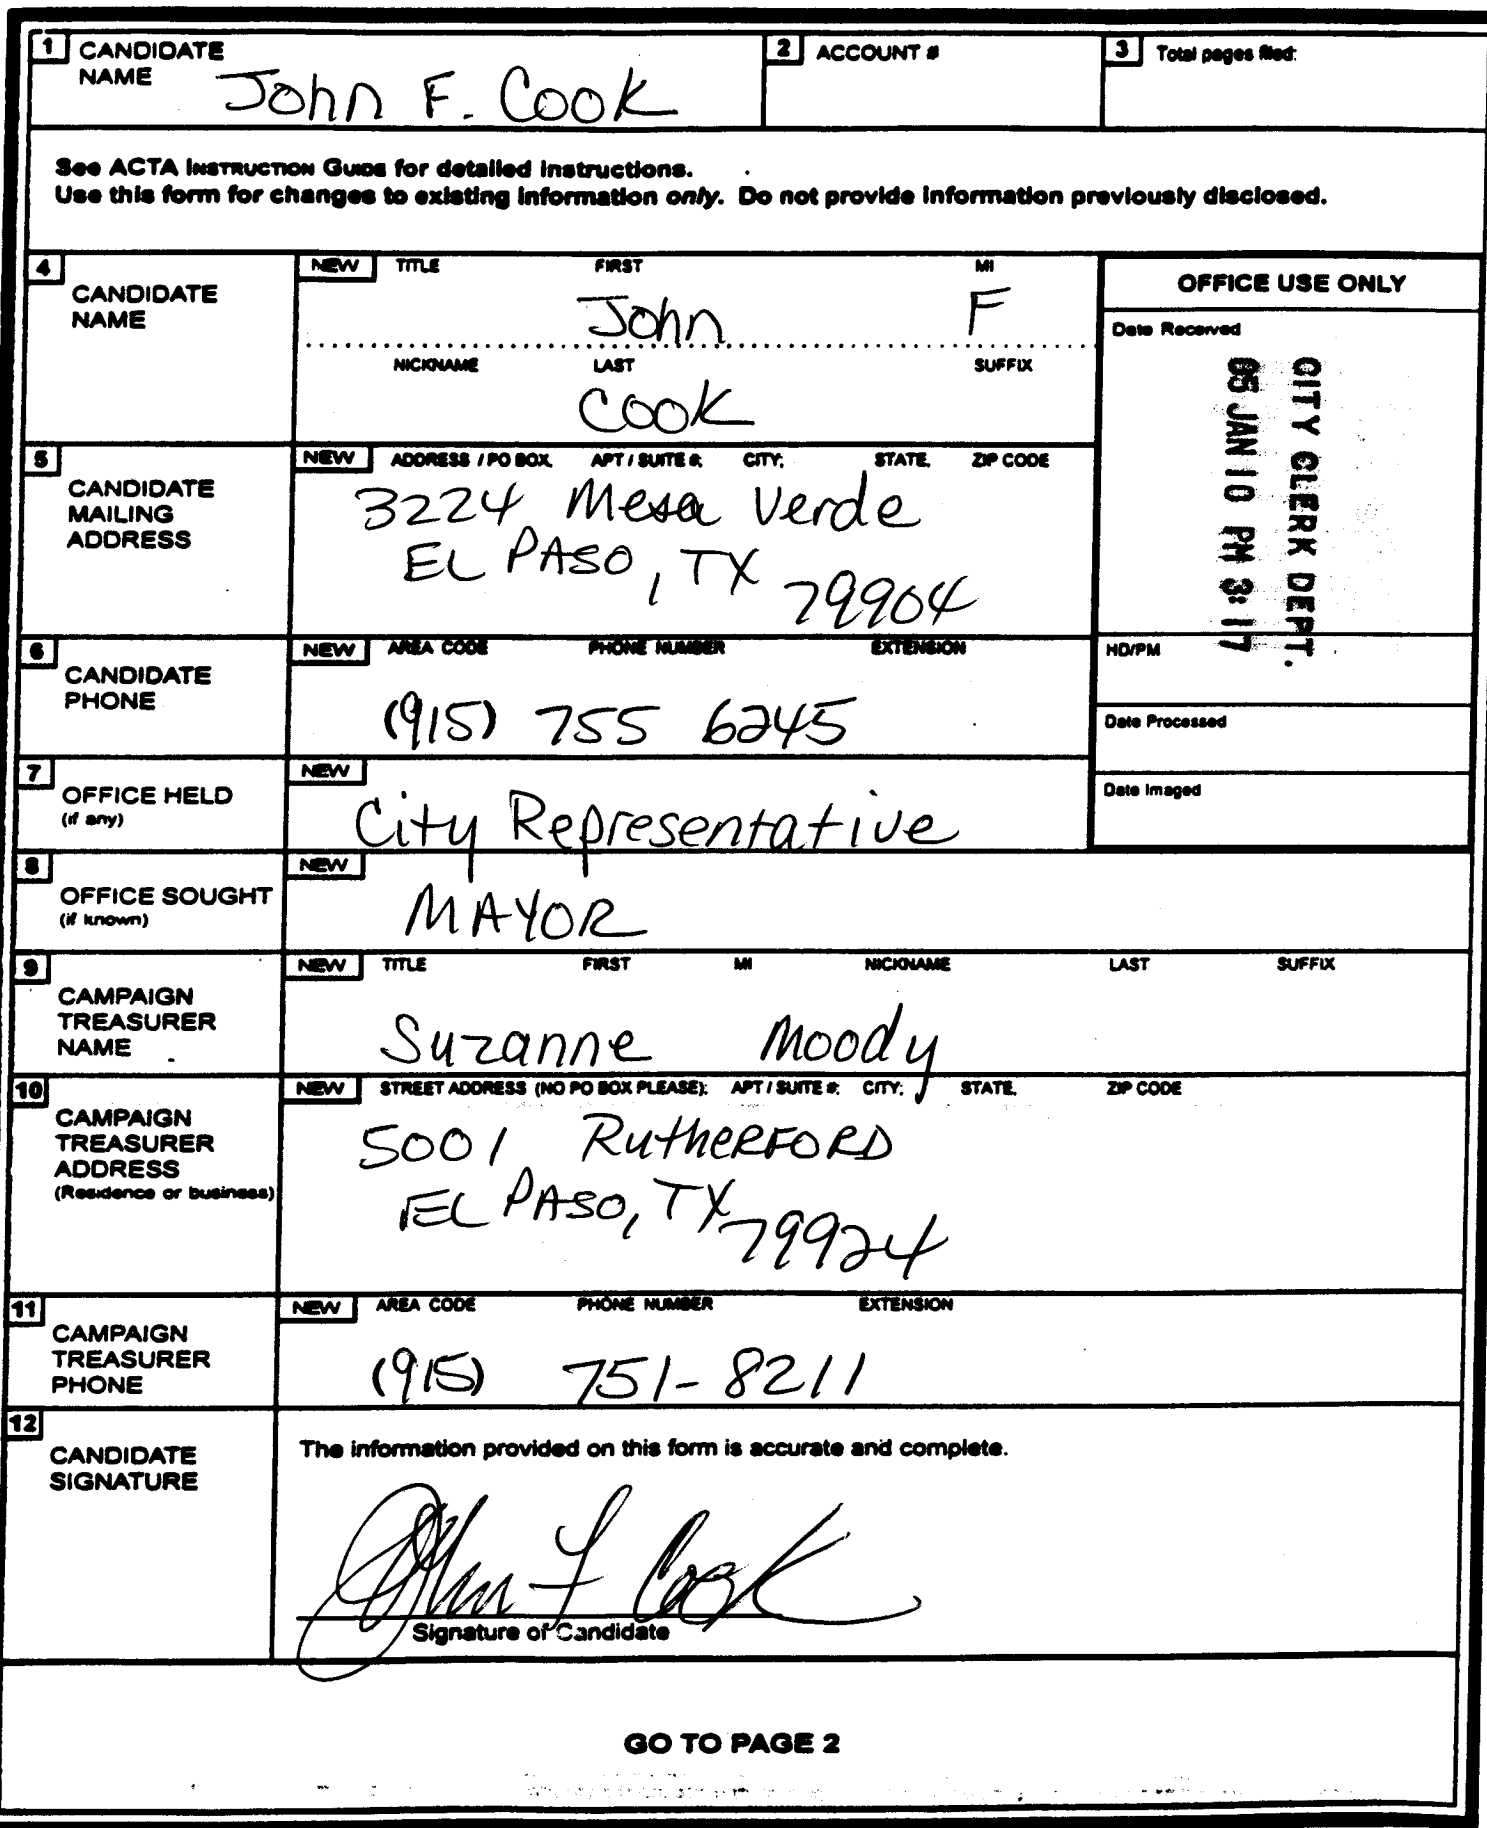 1 CANDIDATE NAME John F. Cook
2 ACCOUNT #
3 Total pages filed:
See ACTA INSTRUCTION GUIDE for detailed instructions.
Use this form for changes to existing information only. Do not provide information previously disclosed.
4 CANDIDATE NAME
NEW TITLE FIRST MI
John F
NICKNAME LAST SUFFIX
Cook
OFFICE USE ONLY
Date Received
CITY CLERK DEPT.
05 JAN 10 PM 3:17
5 CANDIDATE MAILING ADDRESS
NEW ADDRESS / PO BOX; APT / SUITE #; CITY; STATE; ZIP CODE
3224 Mesa Verde
EL PASO, TX 79904
6 CANDIDATE PHONE
NEW AREA CODE PHONE NUMBER EXTENSION
(915) 755 6245
HD/PM
Date Processed
Date Imaged
7 OFFICE HELD (if any)
NEW
City Representative
8 OFFICE SOUGHT (if known)
NEW
MAYOR
9 CAMPAIGN TREASURER NAME
NEW TITLE FIRST MI NICKNAME LAST SUFFIX
Suzanne Moody
10 CAMPAIGN TREASURER ADDRESS (Residence or business)
NEW STREET ADDRESS (NO PO BOX PLEASE); APT / SUITE #; CITY; STATE; ZIP CODE
5001 RutheRFORD
EL PASO, TX 79924
11 CAMPAIGN TREASURER PHONE
NEW AREA CODE PHONE NUMBER EXTENSION
(915) 751-8211
12 CANDIDATE SIGNATURE
The information provided on this form is accurate and complete.
John F Cook
Signature of Candidate
GO TO PAGE 2